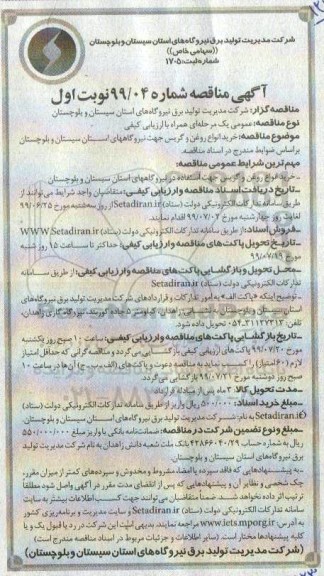 شرکت مدیریت تولید برق نیروگاه های استان سیستان و بلوچستان
((سهامی خاص))
شماره ثبت: ۱۷۰۵
آگهی مناقصه شماره ۹۹/۰۴ نوبت اول
مناقصه گزار: شرکت مدیریت تولید برق نیروگاه های استان سیستان و بلوچستان
نوع مناقصه: عمومی یک مرحله ای همراه با ارزیابی کیفی
موضوع مناقصه: خرید انواع روغن و گریس جهت نیروگاههای استان سیستان و بلوچستان
براساس ضوابط مندرج در اسناد مناقصه.
مهم ترین شرایط عمومی مناقصه:
-خرید انواع روغن و گریس جهت استفاده در نیروگاههای استان سیستان و بلوچستان
-تاریخ دریافت اسناد مناقصه و ارزیابی کیفی: متقاضیان واجد شرایط می توانند از
طریق سامانه تدارکات الکترونیکی دولت (ستاد) Setadiran.ir از روز سه شنبه مورخ ۹۹/۰۶/۲۵
لغایت روز چهارشنبه مورخ ۹۹/۰۷/۰۲ اقدام نمایند.
-فروش اسناد: از طریق سامانه تدارکات الکترونیکی دولت (ستاد) WWW.Setadiran.ir
-تاریخ تحویل پاکت های مناقصه و ارزیابی کیفی: حداکثر تا ساعت ۱۵ روز شنبه
مورخ ۹۹/۰۷/۱۹
-محل تحویل و بازگشایی پاکت های مناقصه و ارزیابی کیفی: از طریق سامانه
تدارکات الکترونیکی دولت (ستاد) Setadiran.ir
-توضیح اینکه «پاکت الف» به امور تدارکات و قراردادهای شرکت مدیریت تولید برق نیروگاه های
استان سیستان و بلوچستان به نشانی: زاهدان، کیلومتر ۵ جاده کورین، نیروگاه گازی زاهدان،
تلفن: ۳۱۱۳۷۲۱۳-۰۵۴ تحویل داده شود.
-تاریخ بازگشایی پاکت های مناقصه و ارزیابی کیفی: ساعت ۱۰ صبح روز یکشنبه
مورخ ۹۹/۰۷/۲۰ پاکت های ارزیابی کیفی بازگشایی می گردد و مناقصه گرانی که حداقل امتیاز
لازم (۶۰ امتیاز) را کسب نمایند به مناقصه دعوت و پاکت های (الف، ب، ج) آن ها در ساعت ۱۰
صبح روز دوشنبه مورخ ۹۹/۰۷/۲۱ بازگشایی می گردد.
-مدت تحویل کالا: ۲ ماه پس از مبادله قرارداد
-مبلغ خرید اسناد: ۵۰۰/۰۰۰ ریال واریز از طریق سامانه تدارکات الکترونیکی دولت (ستاد)
Setadiran.ir
-مبلغ و نوع تضمین شرکت در مناقصه: ضمانتنامه بانکی یا واریز مبلغ ۵۵۰/۰۰۰/۰۰۰
ریال به شماره حساب بانک ملت شعبه دانش زاهدان به نام شرکت مدیریت تولید
برق نیروگاه های استان سیستان و بلوچستان.
-به پیشنهادهایی که فاقد سپرده یا امضاء، مشروط و مخدوش و سپرده های کمتر از میزان مقرر،
چک شخصی و نظایر آن و پیشنهادهایی که پس از انقضای مدت مقرر در آگهی واصل شود مطلقاً
ترتیب اثر داده نخواهد شد. ضمناً متقاضیان می توانند جهت کسب اطلاعات بیشتر به سایت
تدارکات الکترونیکی دولت (ستاد) Setadiran.ir و سایت مدیریت و برنامه ریزی کشور
به آدرس: www.iets.mporg.ir مراجعه نمایند. بدیهی است این شرکت در رد یا قبول یک و یا
کلیه پیشنهادها مختار است. (سایر اطلاعات و جزئیات مربوط در اسناد مناقصه مندرج است)
(شرکت مدیریت تولید برق نیروگاه های استان سیستان و بلوچستان)